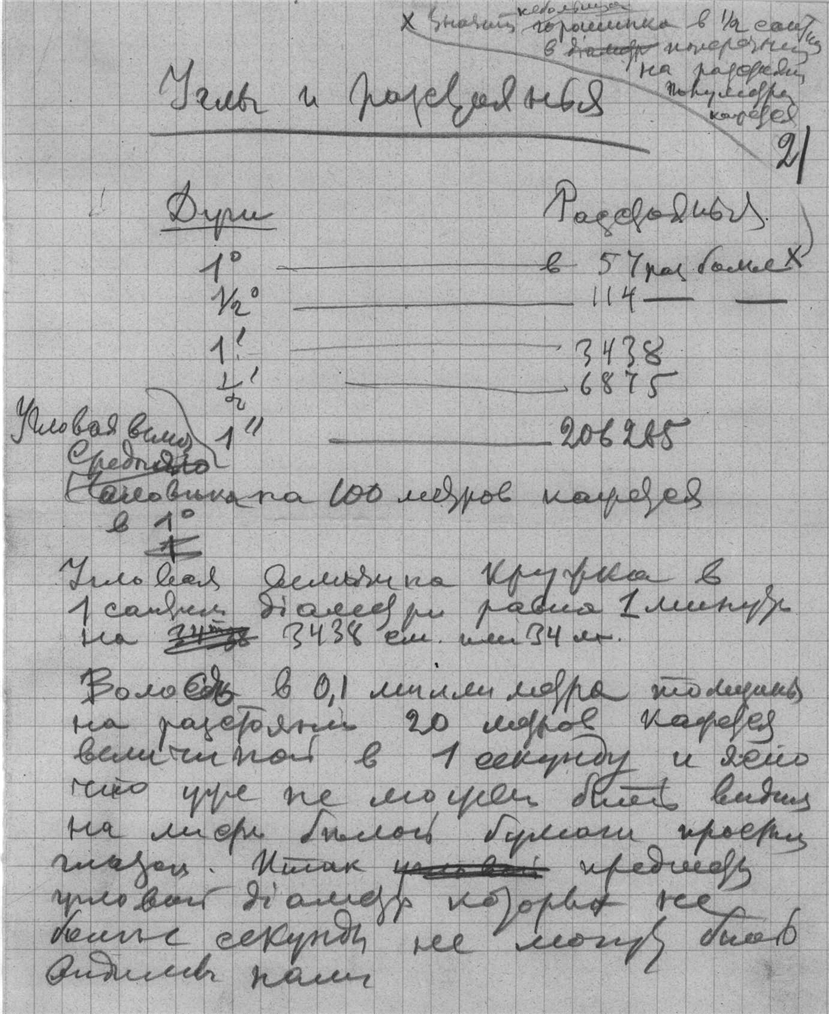 х значит небольшая горошинка в 1/2 сант
в діамер поперечник
на разстояни
полуметра
кажется
Углы и разстоянья
2
Дуги Разстоянья
1° в 57 раз более х
1/2° 114
1' 3438
1/2' 6875
1" 206265
Угловая велич
Средняго
человика на 100 метров кажется
в 1°
1
Угловая величина кружка в
1 сантим діаметра равна 1 минуте
на 3438 см. или 34 м.
Волос в 0,1 миллиметра толщины
на разстояни 20 метров кажется
величиной в 1 секунду и ясно
что уже не может быть видим
на листе белой бумаги простым
глазом. Итак угловой предмет
угловой діаметр которых не
больше секунды не могут быть
видимы нами